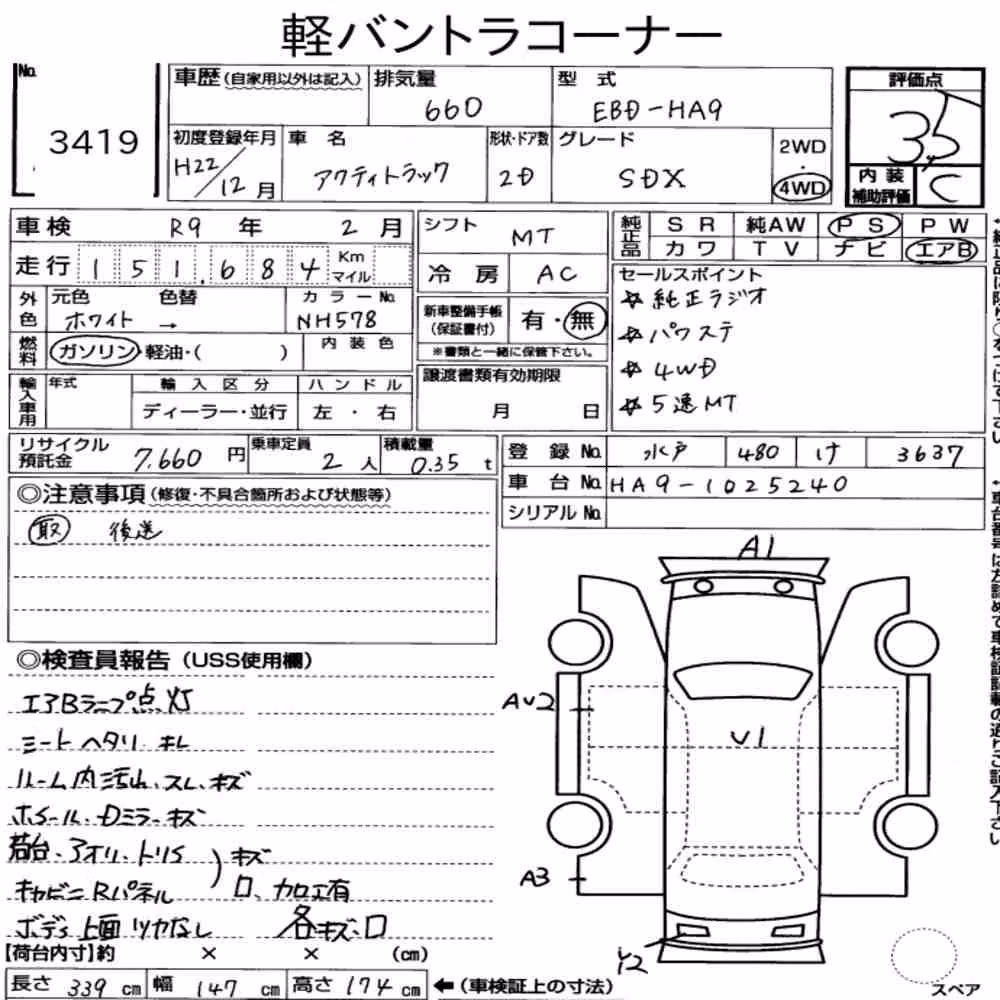 軽バントラコーナー
No. 3419
車歴(自家用以外は記入)
排気量 660
型式 EBD-HA9
評価点 3.5
初度登録年月 H22/12月
車名 アクティトラック
形状・ドア数 2D
グレード SDX
2WD・4WD
内装補助評価 C
車検 R9年 2月
シフト MT
純正品 SR 純AW PS PW
カワ TV ナビ エアB
走行 151,684 Km マイル
冷房 AC
セールスポイント
☆ 純正ラジオ
☆ パワステ
☆ 4WD
☆ 5速MT
外色 元色 色替 カラーNo.
ホワイト → NH578
新車整備手帳(保証書付) 有・無
※書類と一緒に保管下さい。
燃料 ガソリン・軽油・( ) 内装色
譲渡書類有効期限
月 日
輸入車用 年式 輸入区分 ハンドル
ディーラー・並行 左・右
リサイクル預託金 7,660円
乗車定員 2人
積載量 0.35t
登録No. 水戸 480 け 3637
車台No. HA9-1025240
シリアルNo.
◎注意事項(修復・不具合箇所および状態等)
取 後送
◎検査員報告(USS使用欄)
エアBランプ点灯
シートヘタリ、キレ
ルーム内汚れ、スレ、キズ
ホイール、Dミラーキズ
荷台、アオリ、トリイ キズ
キャビンRパネル 凹、加工有
ボディ上面ツヤなし 各キズ、凹
【荷台内寸】約 × × (cm)
長さ 339cm 幅 147cm 高さ 174cm ←(車検証上の寸法)
A1
AU2
U1
A3
Y2
スペア